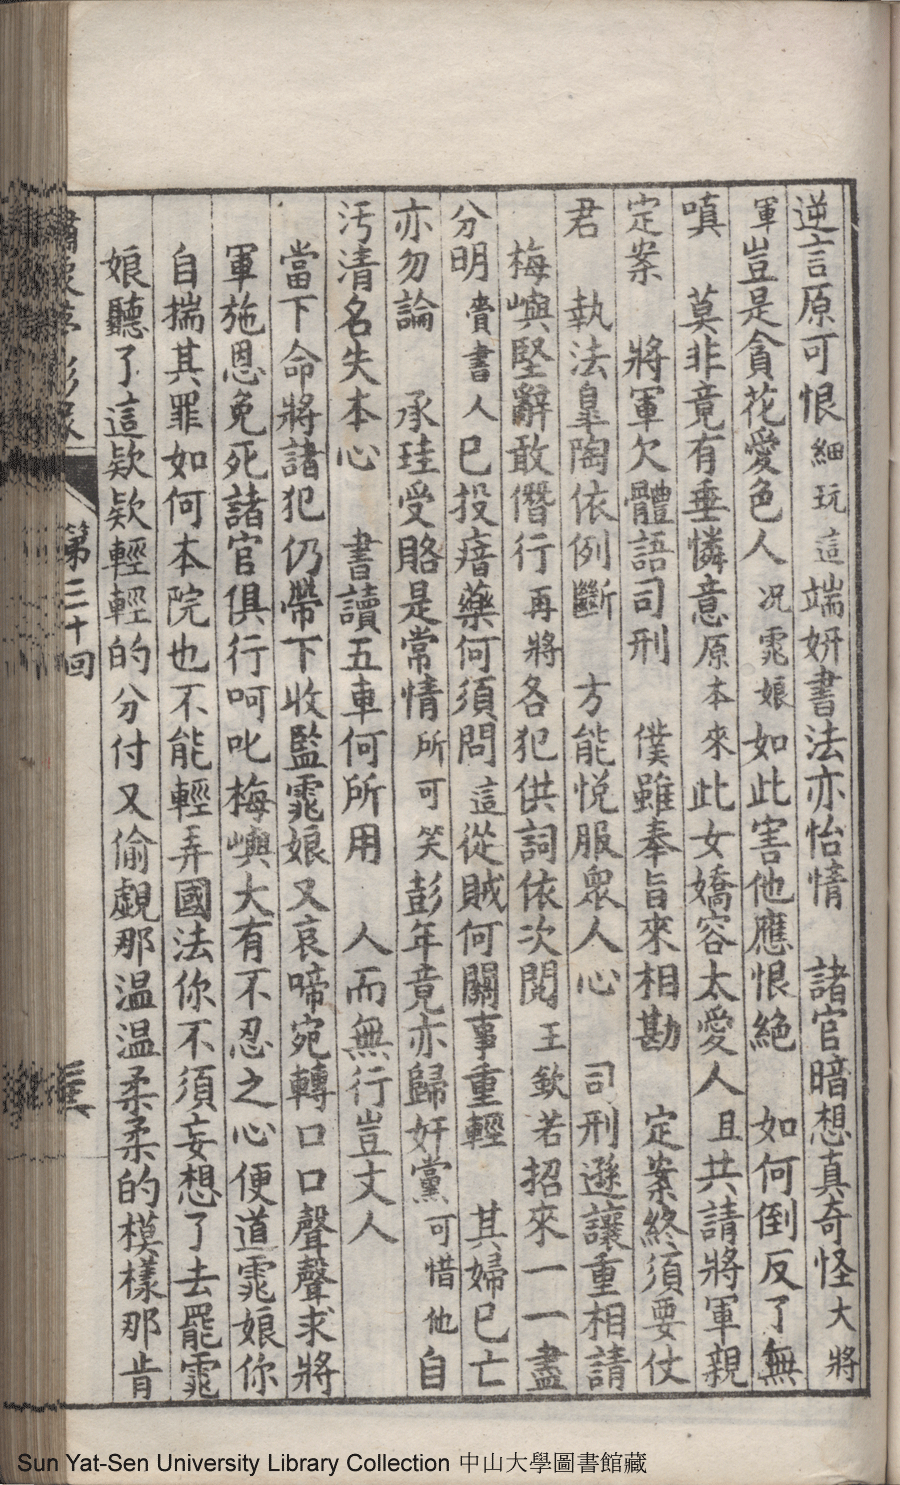 逆言原可恨細玩這端妍書法亦怡情　諸官暗想真奇怪大將
軍豈是貪花愛色人况霓娘如此害他應恨絕　如何倒反了無
嗔　莫非竟有垂憐意原本來此女嬌容太愛人且共請將軍親
定案　將軍欠體語司刑　僕雖奉旨來相勘　定案終須要仗
君　執法臯陶依例斷　方能悦服眾人心　司刑遜讓重相請
梅嶼堅辭敢僭行再將各犯供詞依次閱王欽若招來一一盡
分明賫書人已投瘖藥何須問這從賊何關事重輕　其婦已亡
亦勿論　承珪受賂是常情所可笑彭年竟亦歸奸黨可惜他自
汚清名失本心　書讀五車何所用　人而無行豈文人
當下命將諸犯仍帶下收監霓娘又哀啼宛轉口口聲聲求將
軍施恩免死諸官俱行呵叱梅嶼大有不忍之心便道霓娘你
自揣其罪如何本院也不能輕弄國法你不須妄想了去罷霓
娘聽了這欵欵輕輕的分付又偷覷那温温柔柔的模樣那肯
第三十回
Sun Yat-Sen University Library Collection 中山大學圖書館藏